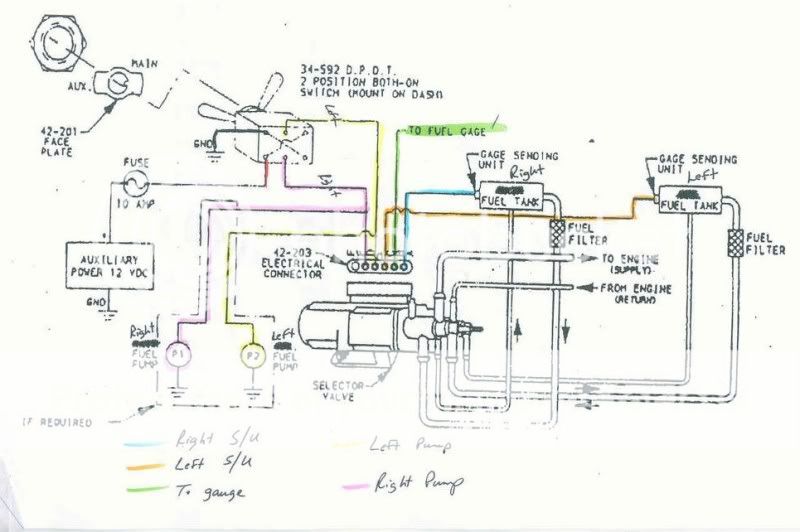 MAIN
AUX.
42-201
FACE
PLATE
34-592 D.P.D.T.
2 POSITION BOTH-ON
SWITCH (MOUNT ON DASH)
GND
TO FUEL GAGE
FUSE
10 AMP
GAGE SENDING
UNIT
Right
FUEL TANK
GAGE SENDING
UNIT
Left
FUEL TANK
FUEL
FILTER
FUEL
FILTER
42-203
ELECTRICAL
CONNECTOR
TO ENGINE
(SUPPLY)
FROM ENGINE
(RETURN)
AUXILIARY
POWER 12 VDC
GND
Right
FUEL
PUMP
P1
P2
Left
FUEL
PUMP
SELECTOR
VALVE
IF REQUIRED
Right S/U
Left S/U
To gauge
Left Pump
Right Pump